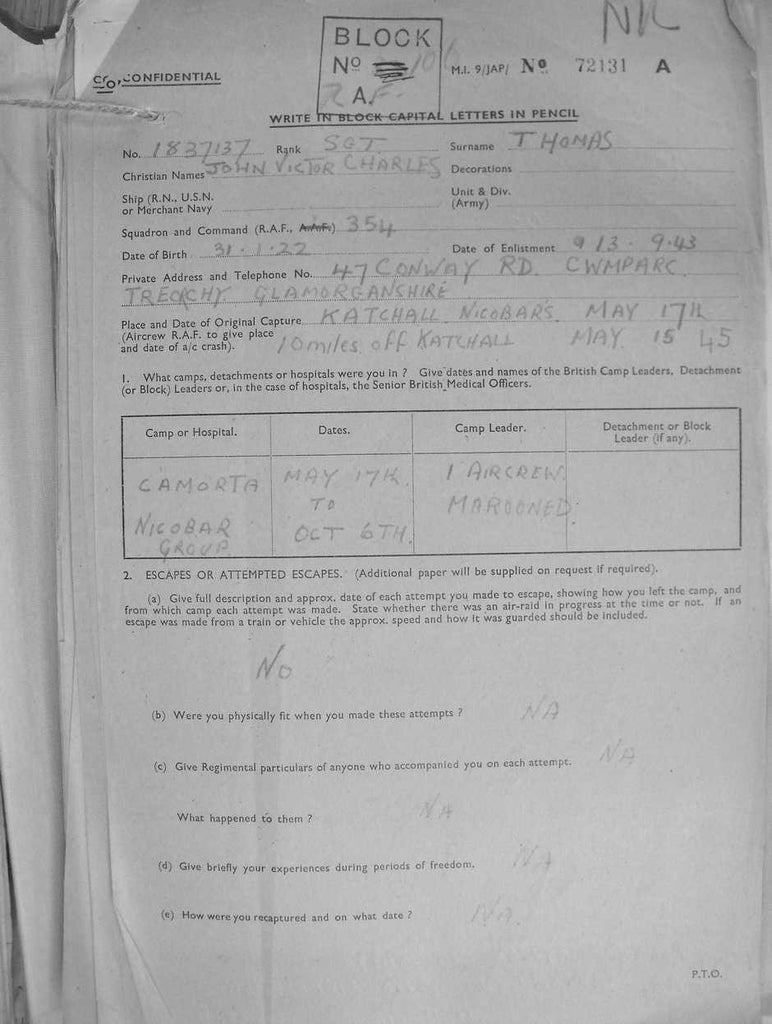 NIL
BLOCK
Nº 106
R A.F.
CONFIDENTIAL
M.I. 9/JAP/ Nº 72131 A
WRITE IN BLOCK CAPITAL LETTERS IN PENCIL
No. 1837137 Rank SGT Surname THOMAS
Christian Names JOHN VICTOR CHARLES Decorations
Ship (R.N., U.S.N. or Merchant Navy Unit & Div. (Army)
Squadron and Command (R.A.F., A.A.F.) 354
Date of Birth 31.1.22 Date of Enlistment 13.9.43
Private Address and Telephone No. 47 CONWAY RD. CWMPARC
TREORCHY GLAMORGANSHIRE
Place and Date of Original Capture KATCHALL NICOBARS MAY 17TH
(Aircrew R.A.F. to give place
and date of a/c crash). 10 miles off KATCHALL MAY 15 45
1. What camps, detachments or hospitals were you in ? Give dates and names of the British Camp Leaders, Detachment
(or Block) Leaders or, in the case of hospitals, the Senior British Medical Officers.
Camp or Hospital. Dates. Camp Leader. Detachment or Block Leader (if any).
CAMORTA MAY 17TH. 1 AIRCREW
TO MAROONED
NICOBAR OCT 6TH.
GROUP
2. ESCAPES OR ATTEMPTED ESCAPES. (Additional paper will be supplied on request if required).
(a) Give full description and approx. date of each attempt you made to escape, showing how you left the camp, and
from which camp each attempt was made. State whether there was an air-raid in progress at the time or not. If an
escape was made from a train or vehicle the approx. speed and how it was guarded should be included.
No
(b) Were you physically fit when you made these attempts ? NA
(c) Give Regimental particulars of anyone who accompanied you on each attempt. NA
What happened to them ? NA
(d) Give briefly your experiences during periods of freedom. NA
(e) How were you recaptured and on what date ? NA
P.T.O.